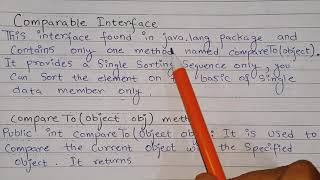 Comparable Interface
This interface found in java.lang package and
contains only one method named compareTo(object).
It provides a Single Sorting Sequence only, you
can Sort the element on the basic of Single
data member only.
compareTo(object obj) meth
Public int compareTo(object obj): It is used to
compare the current object with the specified
object. It returns